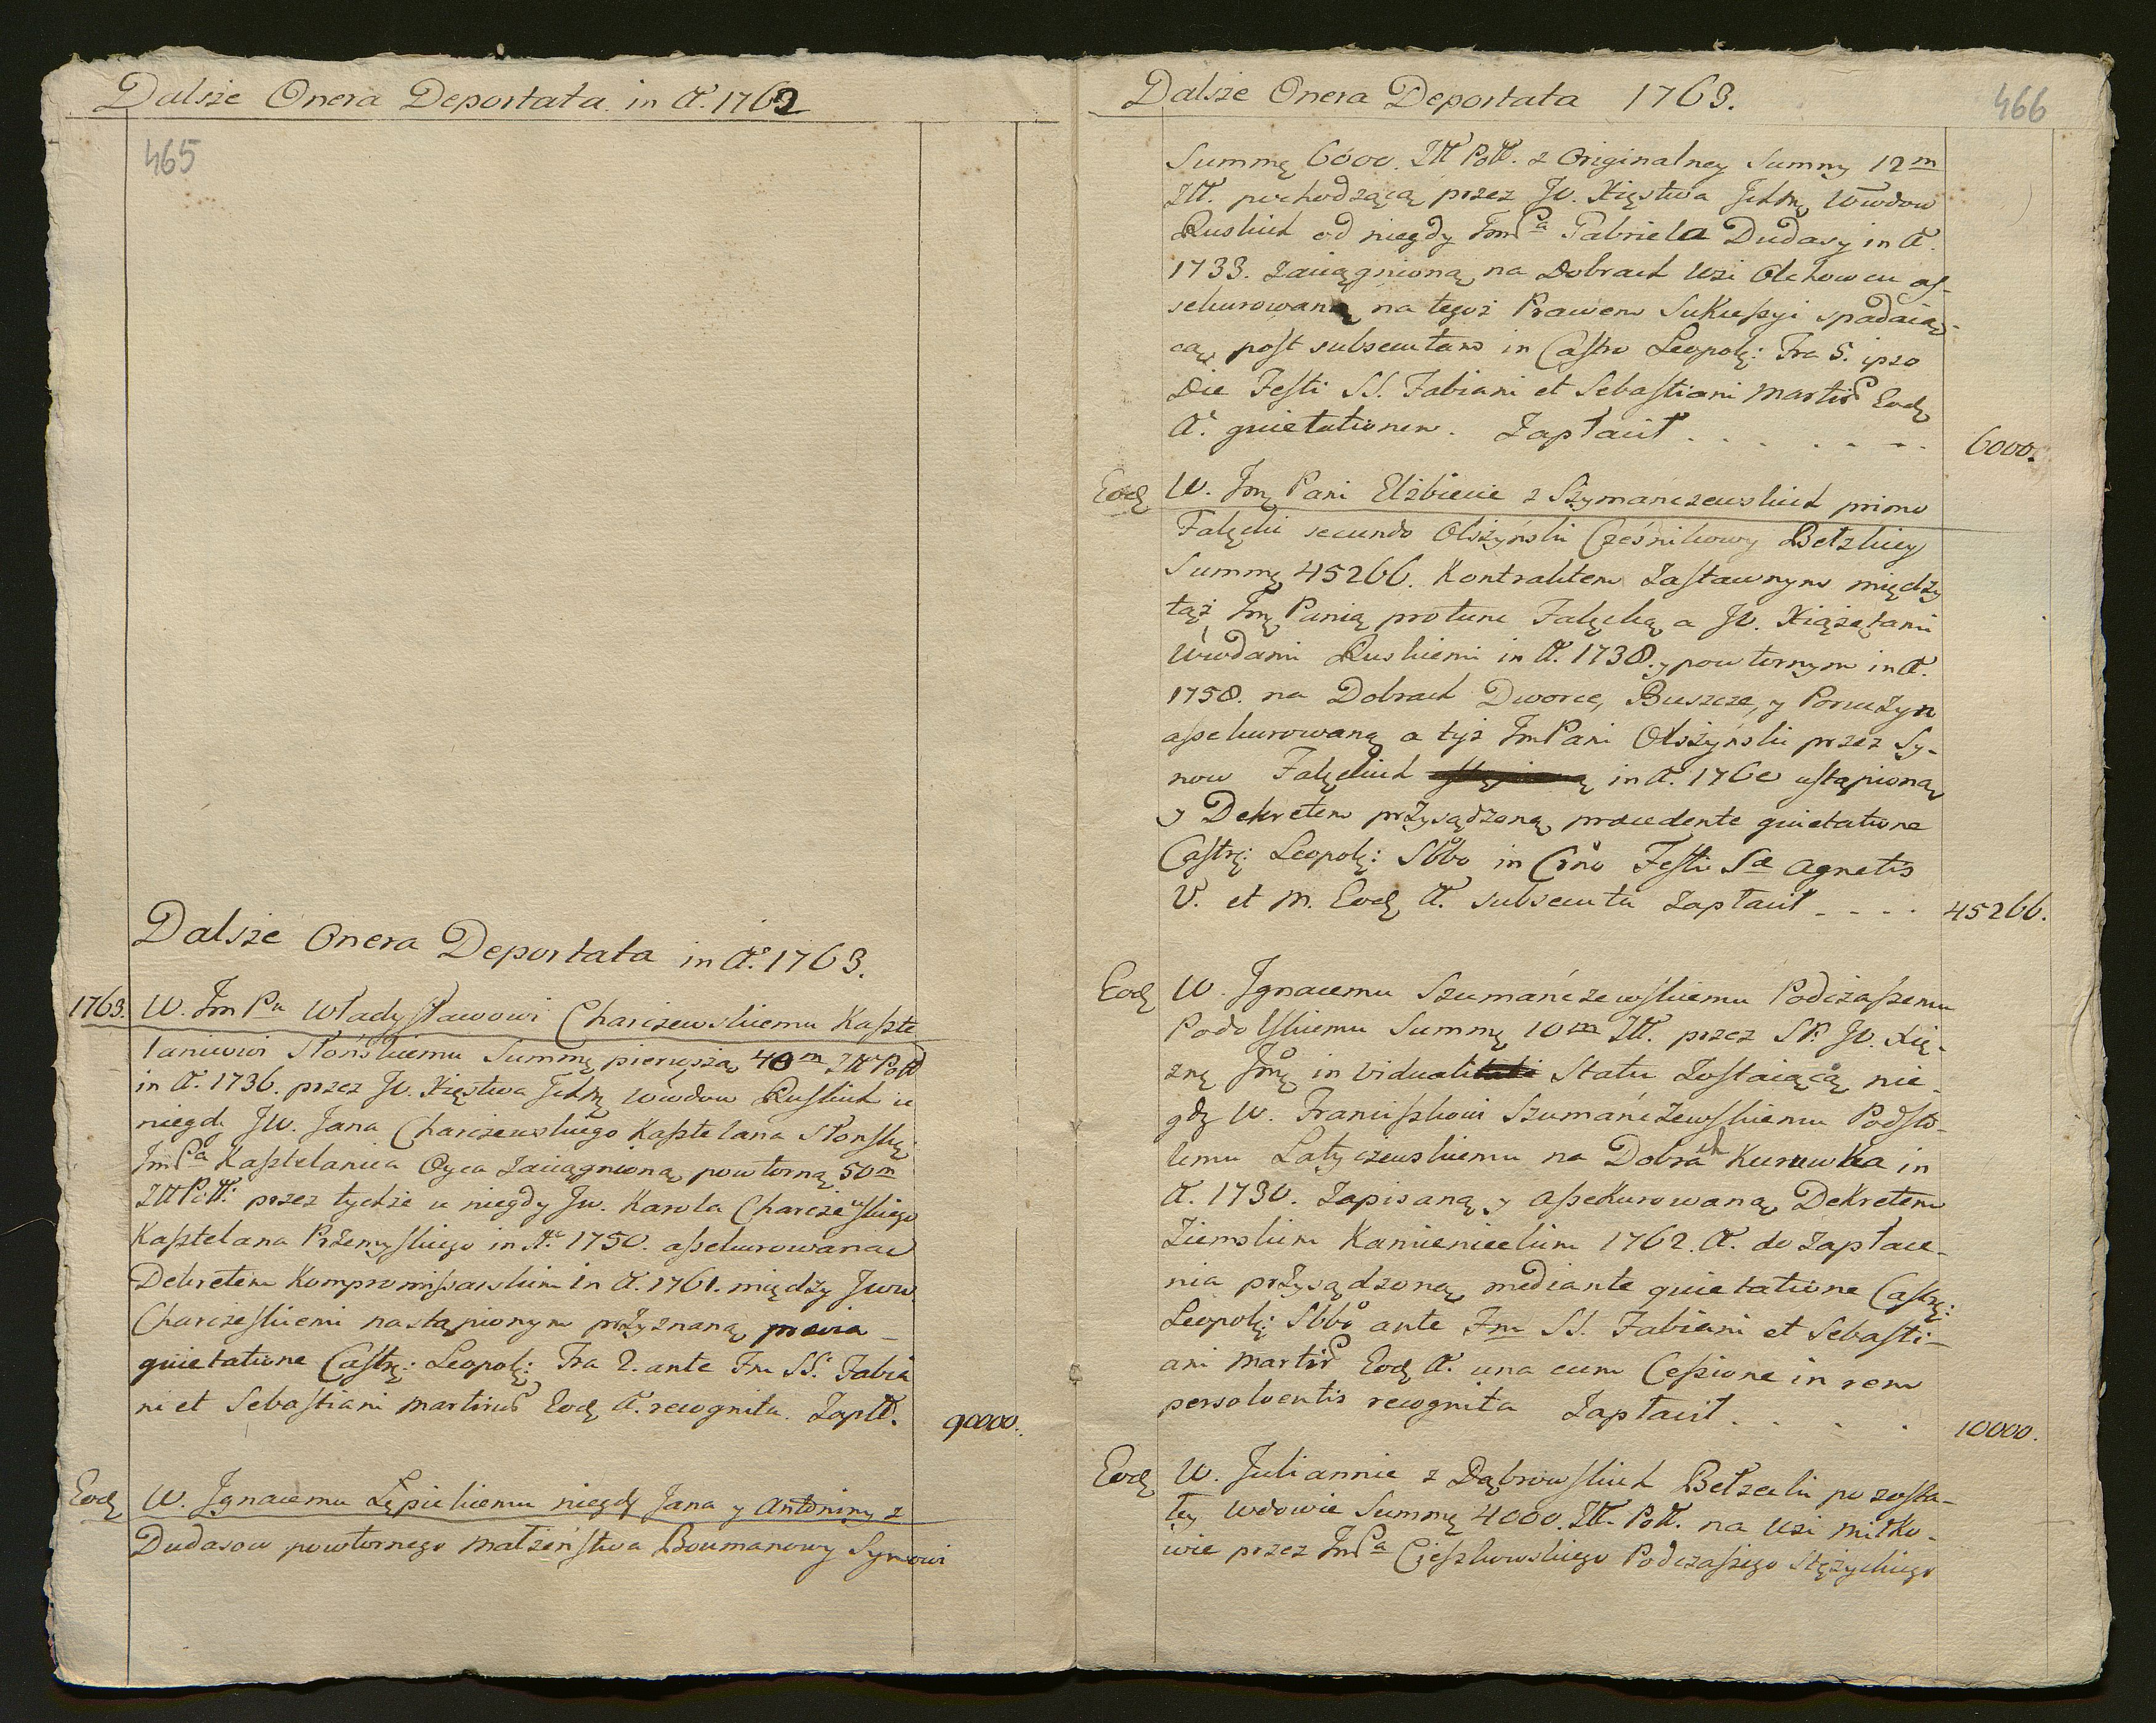 Dalsze Onera Deportata in A. 1762
465
Dalsze Onera Deportata in Aº. 1763.
1763. W. Jm Pu Władysławowi Charczewskiemu Kaszte
lanowi Słońskiemu Summę pierwszą 40m Złł Poll
in A. 1736. przez JO. Xięstwa Jchmę Wwdow Ruskich u
niegdy JW. Jana Charczewskiego Kasztelana Słonskę:
JmPa Kasztelanica Oyca zaciągnioną powtorną 50m
Złł Poll: przez tychże u niegdy Jw. Karola Charczewskiego
Kasztelana Przemyskiego in Aº 1750. assekurowaną
Dekretem Kompromissarskim in A. 1761. między Jww.
Charczeskiemi nastąpionym przyznaną, praevia
quietatione Castrę: Leopolę: Fra 2. ante Fm SS. Fabia
ni et Sebastiani Martirum Eodę A. recognita. Zapłł. 90000.
Eodę W. Jgnacemu Lępickiemu niegdy Jana y Antoniny z
Dudasow powtornego małżeństwa Boumanowy Synowi
Dalsze Onera Deportata 1763.
466
Summę 6000. Złł Poll. z Originalney Summy 12m
Złł. pochodzącą przez JO. Xięstwa Jchmę Wwdow
Ruskich od niegdy JmPa Gabriela Dudasy in A.
1733. zaciągnioną na Dobrach Wsi Olchowcu as-
sekurowaną na tegoż Prawem Sukcessyi spadaią-
cą, post subsecutam in Castro Leopolę: Fra 5. ipso
Die Festi SS. Fabiani et Sebastiani Martir Eodę
A. quietationem. Zapłacił . . . . . . 6000.
Eodę W. Jmę Pani Elżbiecie z Szymanczewskich primo
Falęcki secundo Olszyński Cześnikowy Bełzkiey
Summę 45266. Kontraktem Zastawnym między
tąż Jmę Panią protunc Falęcką a JO. Xiążętami
Wwdami Ruskiemi in A. 1738. y powtornym in A.
1758. na Dobrach Dworce, Buszcze, y Poruczyn
assekurowaną a tyż JmPani Olszyński przez Sy-
now Falęckich in A. 1760 ustąpioną
y Dekretem przysądzoną, praecedente quietatione
Castrę: Leopolę: Sbbo in Crno Festi Sae Agnetis
V. et M. Eodę A. subsecuta Zapłacił . . . . 45266.
Eodę W. Jgnacemu Szumańczewskiemu Podczaszemu
Podolskiemu Summę 10m Złł. przez SP. JO. Xię-
znę Jmę in viduali Statu Zostaiącą, nie-
gdy W. Franciszkowi Szumańczewskiemu Podsto-
lemu Latyczewskiemu na Dobrach Kurowka in
A. 1730. Zapisaną y assekurowaną, Dekretem
Ziemskim Kamienieckim 1762. A. do Zapłace-
nia przysądzoną, mediante quietatione Castrę:
Leopolę: Sbbo ante Fm SS. Fabiani et Sebasti-
ani Martir Eodę A. una cum Cessione in rem
persolventis recognita Zapłacił . . . . 10000.
Eodę W. Juliannie z Dąbrowskich Bełzecki pozosta-
łey Wdowie Summę 4000. Złł. Poll. na Wsi Mitko-
wie przez JmPa Cieszkowskiego Podczaszego Stężyckiego